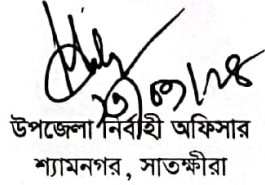 উপজেলা নির্বাহী অফিসার
শ্যামনগর, সাতক্ষীরা